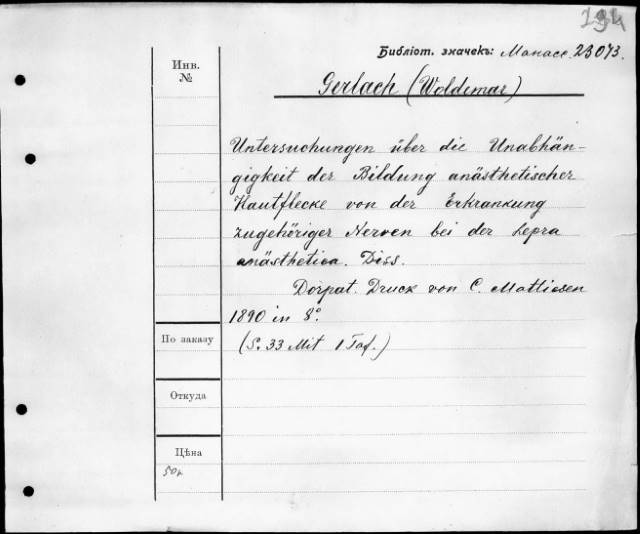 194
Библіот. значекъ: Манасс. 23073.
Инв.
№
Gerlach (Woldemar)
Untersuchungen über die Unabhän-
gigkeit der Bildung anästhetischer
Hautflecke von der Erkrankung
zugehöriger Nerven bei der Lepra
anästhetica. Diss.
Dorpat. Druck von C. Mattiesen
1890 in 8º.
По заказу
(S. 33 Mit 1 Taf.)
Откуда
Цѣна
50к